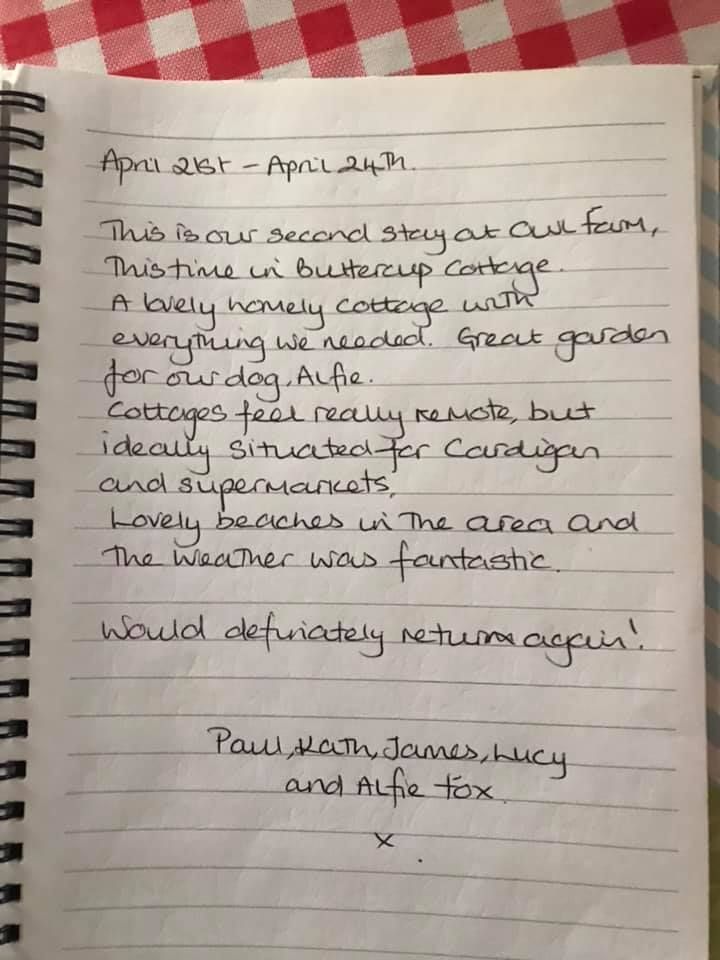 April 21st - April 24th.
This is our second stay at Owl Farm,
This time in Buttercup Cottage.
A lovely homely cottage with
everything we needed. Great garden
for our dog, Alfie.
Cottages feel really remote, but
ideally situated for Cardigan
and supermarkets.
Lovely beaches in the area and
the weather was fantastic.
Would definiately return again!
Paul, Kath, James, Lucy
and Alfie Fox.
x